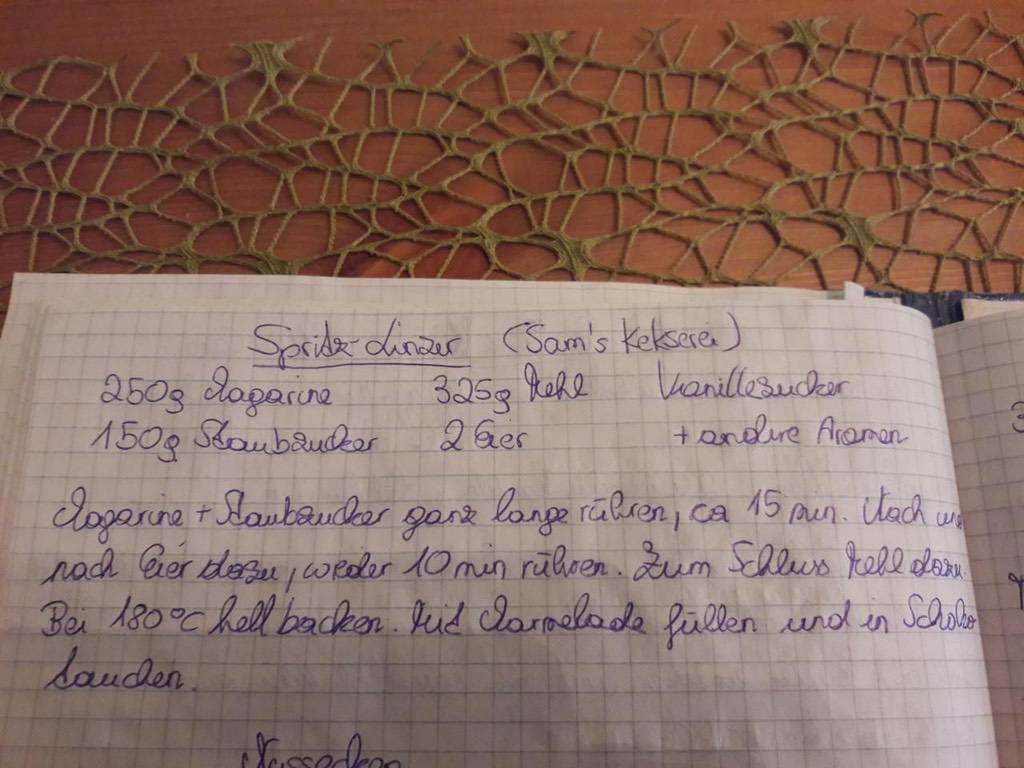 Spritz-Linzer (Sam's Kekserei)
250g Magarine 325g Mehl Vanillezucker
150g Staubzucker 2 Eier + andere Aromen
Magarine + Staubzucker ganz lange rühren, ca 15 min. Nach und
nach Eier dazu, wieder 10 min rühren. Zum Schluss Mehl dazu.
Bei 180°C hell backen. Mit Marmelade füllen und in Schoko
tauchen.